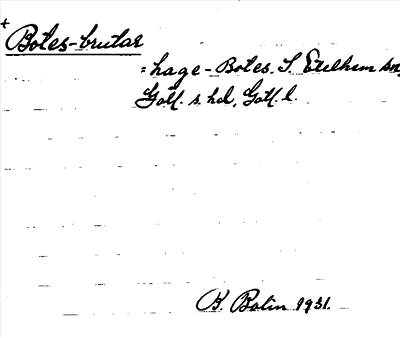 +
Botes-brutar
= hage - Botes. S. Etelhem sn,
Gotl. s. hd, Gotl. l.
G. Bolin 1931.